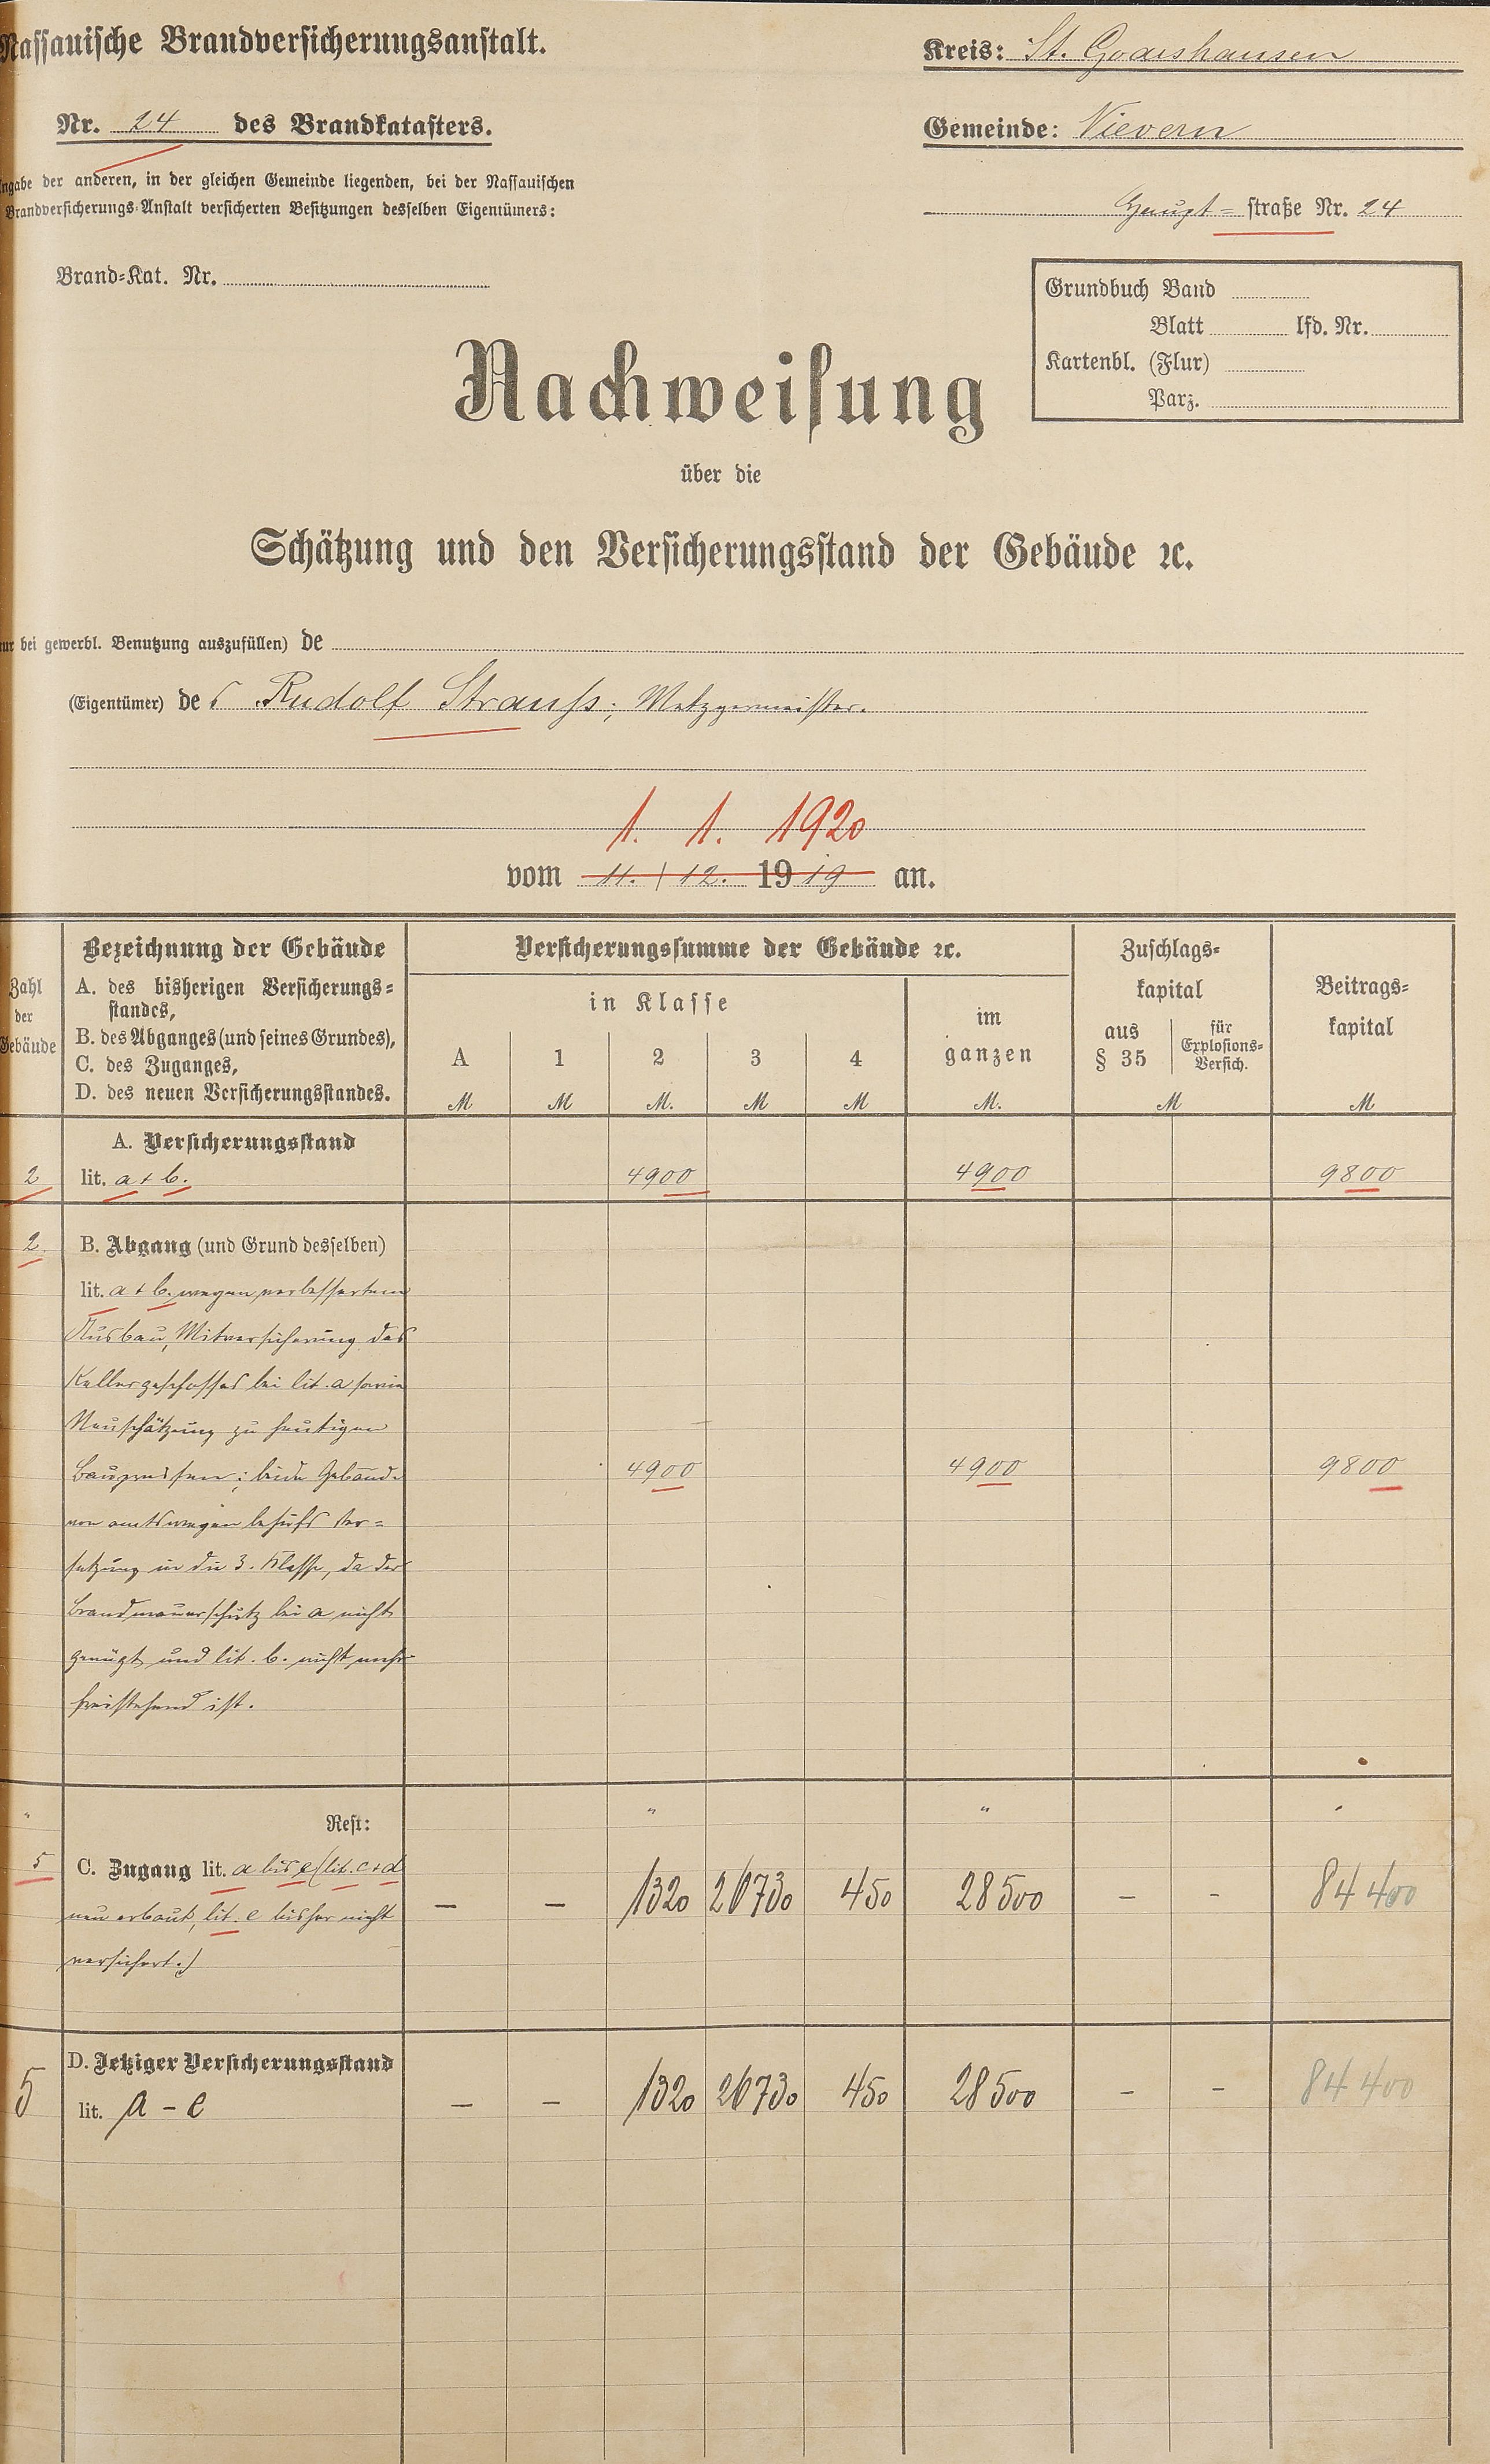 Nassauische Brandversicherungsanstalt.
Kreis: St. Goarshausen
Nr. 24 des Brandkatasters.
Gemeinde: Nievern
ngabe der anderen, in der gleichen Gemeinde liegenden, bei der Nassauischen
Brandversicherungs-Anstalt versicherten Besitzungen desselben Eigentümers:
Haupt= straße Nr. 24
Brand-Kat. Nr.
Grundbuch Band
Blatt lfd. Nr.
Kartenbl. (Flur)
Parz.
Nachweisung
über die
Schätzung und den Versicherungsstand der Gebäude ꝛc.
ur bei gewerbl. Benutzung auszufüllen) de
(Eigentümer) des Rudolf Strauß; Metzgermeister.
1. 1. 1920
vom 11. / 12. 1919 an.
Zahl der Gebäude
Bezeichnung der Gebäude
A. des bisherigen Versicherungs=
standes,
B. des Abganges (und seines Grundes),
C. des Zuganges,
D. des neuen Versicherungsstandes.
Versicherungssumme der Gebäude ꝛc.
in Klasse
A 1 2 3 4
im
ganzen
Zuschlags=
kapital
aus
§ 35
für
Explosions=
Versich.
Beitrags=
kapital
M M M. M M M. M M
A. Versicherungsstand
2 lit. a + b. 4900 4900 9800
2. B. Abgang (und Grund desselben)
lit. a + b. wegen verbessertem
Ausbau, Mitversicherung des
Kellergeschosses bei lit. a sowie
Neuschätzung zu heutigen
Baupreisen; beide Gebäude 4900 4900 9800
von amtswegen behufs Ver=
setzung in die 3. Klasse, da der
Brandmauerschutz bei a nicht
genügt und lit. b. nicht mehr
freistehend ist.
" Rest: " " "
5 C. Zugang lit. a bis e (lit. c + d
neu erbaut, lit. e bisher nicht — — 1320 26730 450 28500 – – 84400
versichert.)
D. Jetziger Versicherungsstand
5 lit. a – e — — 1320 26730 450 28500 – – 84400